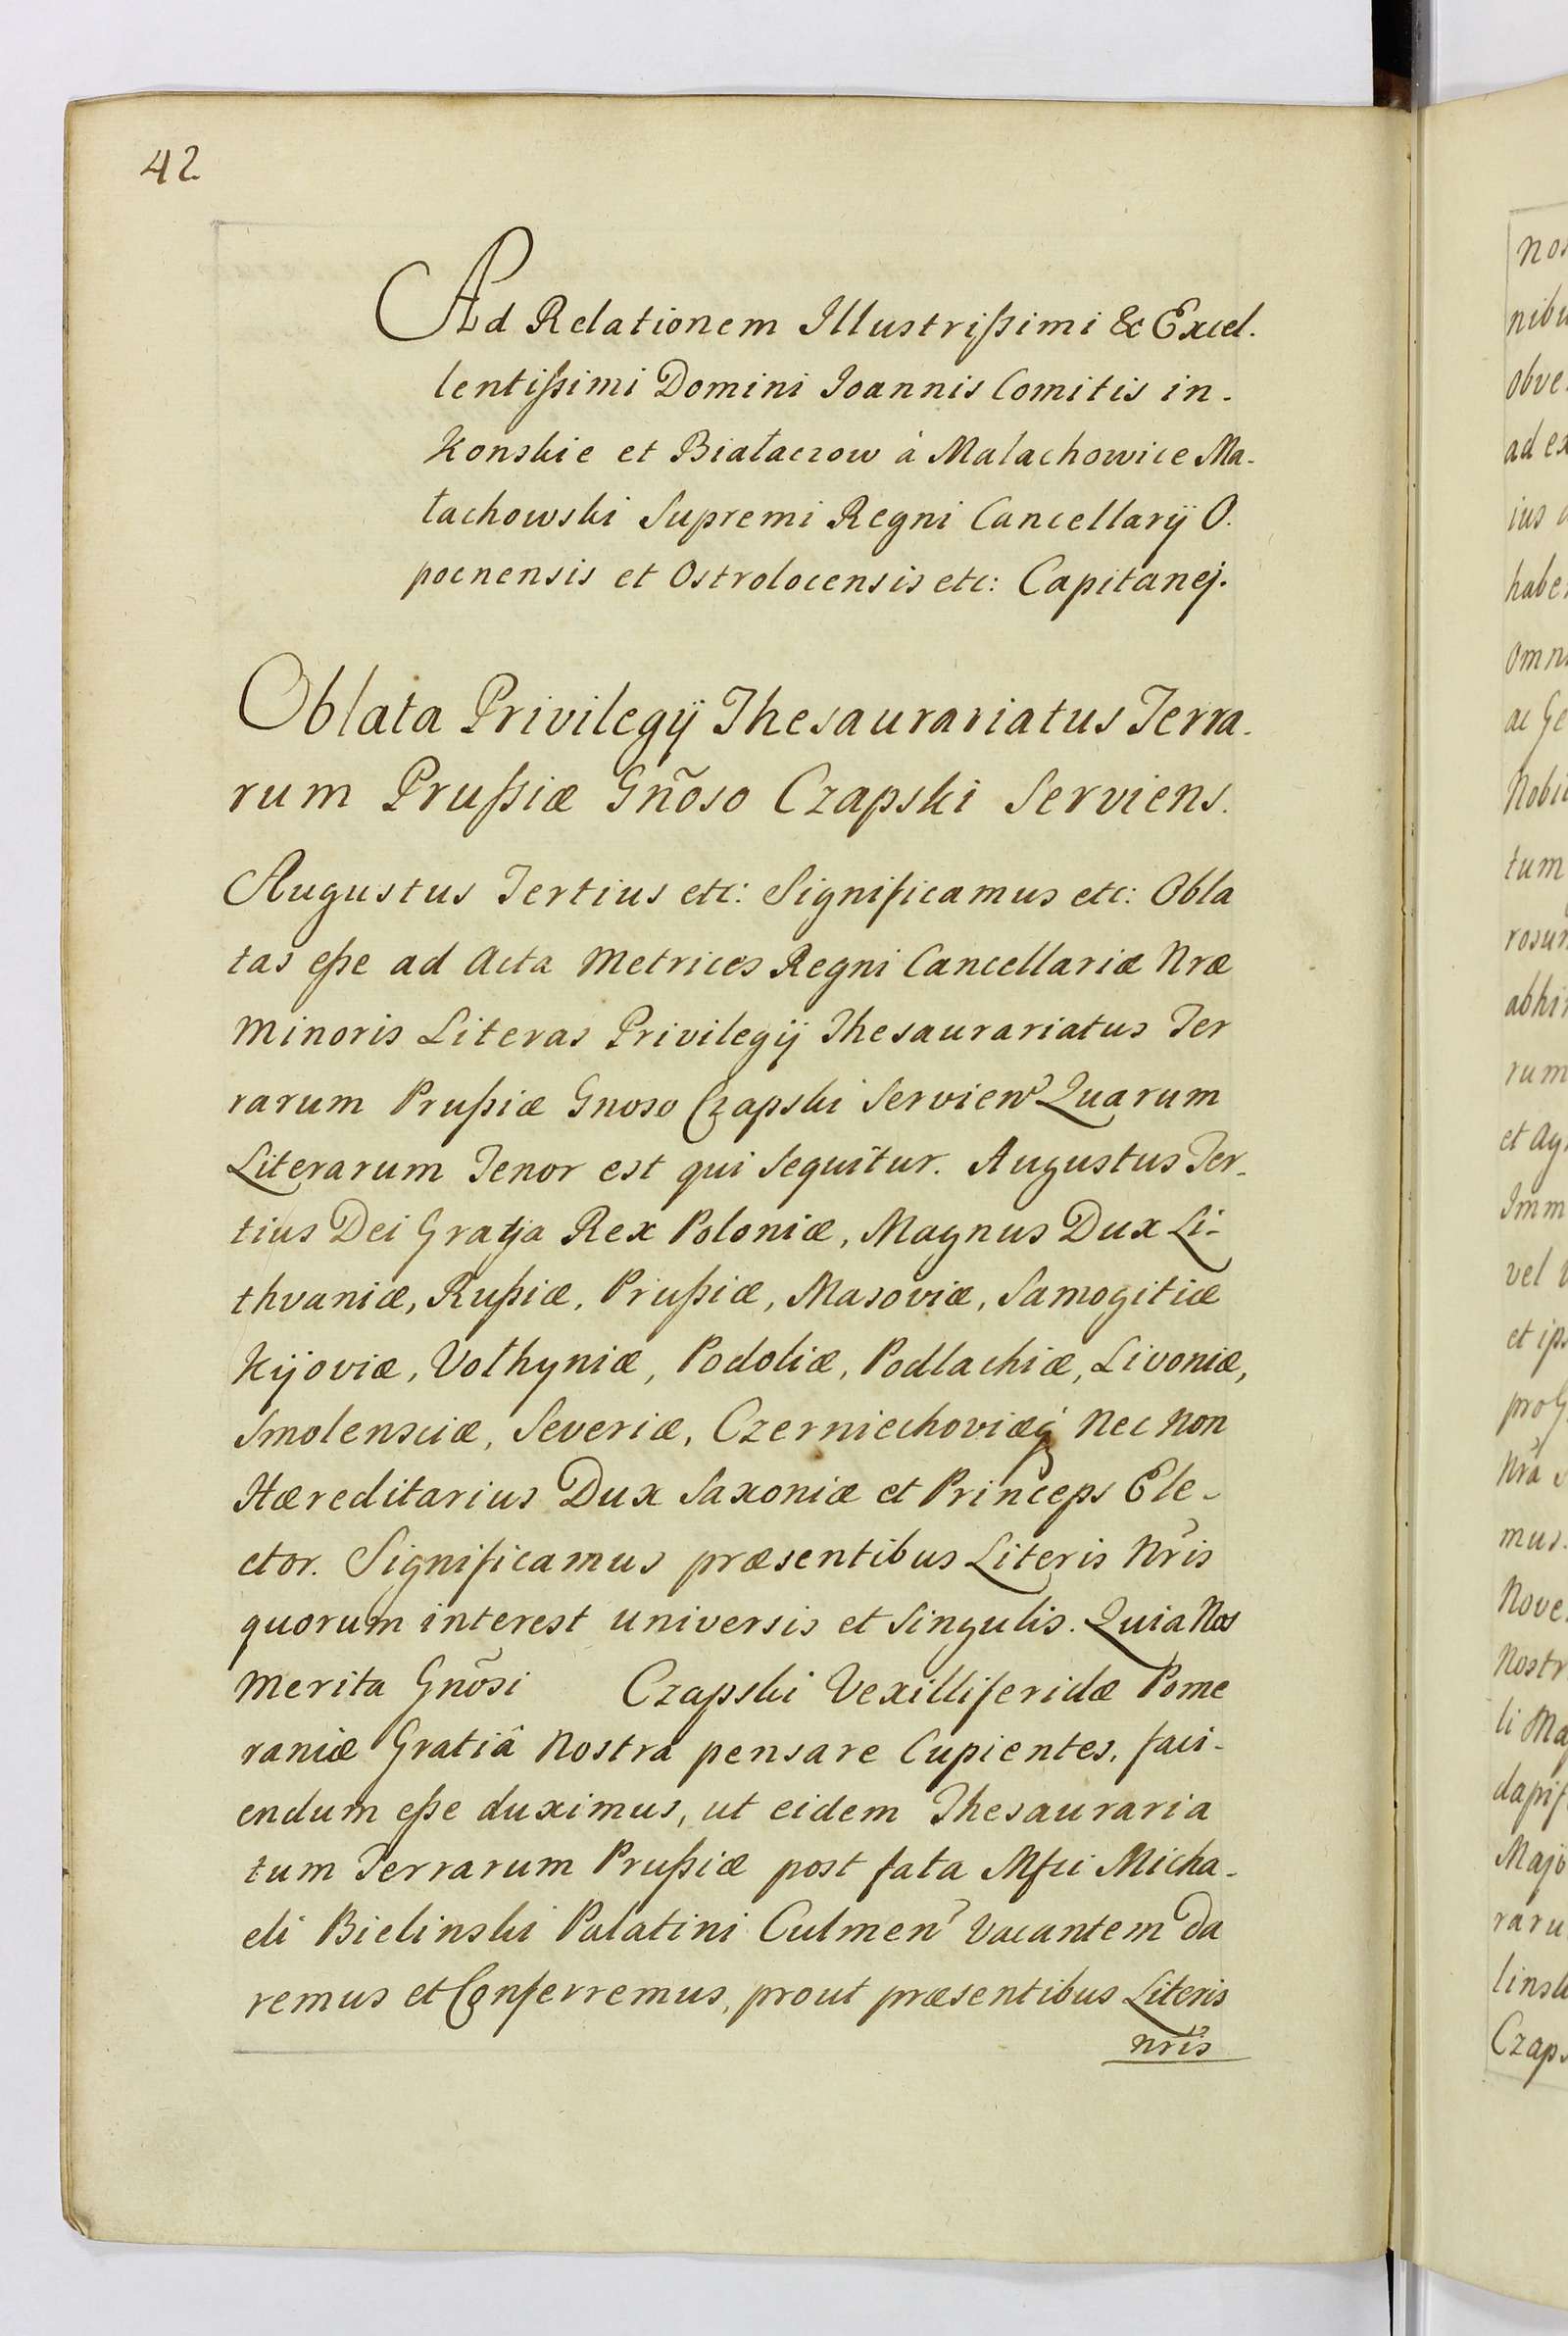 42
Ad Relationem Illustrißimi & Excel-
lentißimi Domini Joannis Comitis in-
Konskie et Białaczow à Malachowice Ma-
łachowski Supremi Regni Cancellarÿ O-
pocnensis et Ostrolocensis etc: Capitanej.
Oblata Privilegÿ Thesaurariatus Terra-
rum Prußiæ Gnõso Czapski Serviens.
Augustus Tertius etc: Significamus etc: Obla
tas eße ad Acta Metrices Regni Cancellariæ Nræ
Minoris Literas Privilegÿ Thesaurariatus Ter
rarum Prußiæ Gnoso Czapski Servien Quarum
Literarum Tenor est qui sequitur. Augustus Ter-
tius Dei Gratja Rex Poloniæ, Magnus Dux Li-
thvaniæ, Rußiæ, Prußiæ, Masoviæ, Samogitiæ
Kijoviæ, Volhyniæ, Podoliæ, Podlachiæ, Livoniæ,
Smolensciæ, Severiæ, Czerniechoviæq Nec Non
Hæreditarius Dux Saxoniæ et Princeps Ele-
ctor. Significamus præsentibus Literis Nris
quorum interest universis et Singulis. Quia Nos
Merita Gnõsi Czapski Vexilliferidæ Pome
raniæ Gratiâ Nostra pensare Cupientes, faci-
endum eße duximus, ut eidem Thesauraria
tum Terrarum Prußiæ post fata Mfci Micha-
eli Bielinski Palatini Culmen Vacantem Da
remus et Conferremus, prout præsentibus Literis
nris
nos
nibu
obve
ad ex
ius
habe
omn
ac Ge
Nobi
tum
rosum
abhi
rum
et Ag
Imm
vel
et ips
pro G
Nra
mus.
Nove
Nostr
li Ma
dapif
Majo
raru
linsk
Czaps